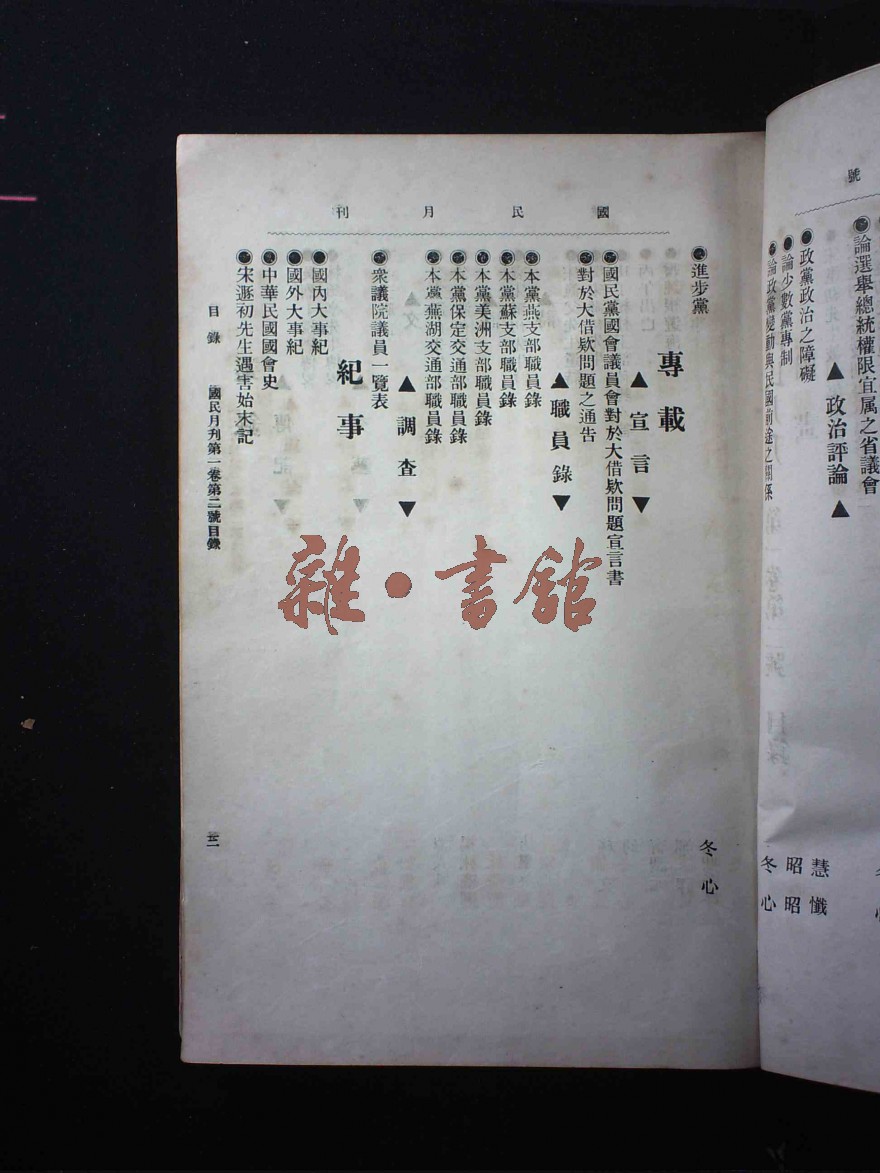 號
論選舉總統權限宜属之省議會
▲政治評論▲
●政黨政治之障礙
慧懺
●論少數黨專制
昭昭
●論政黨變動與民國前途之關係
冬心
國民月刊
●進步黨
冬心
專載
▲宣言▼
●國民黨國會議員會對於大借欵問題宣言書
●對於大借欵問題之通告
▲職員錄▼
●本黨燕支部職員錄
●本黨蘇支部職員錄
●本黨美洲支部職員錄
●本黨保定交通部職員錄
●本黨蕪湖交通部職員錄
▲調查▼
●衆議院議員一覽表
紀事
●國內大事紀
●國外大事紀
●中華民國國會史
●宋遯初先生遇害始末記
目錄 國民月刊第一卷第二號目錄
三
雜·書館